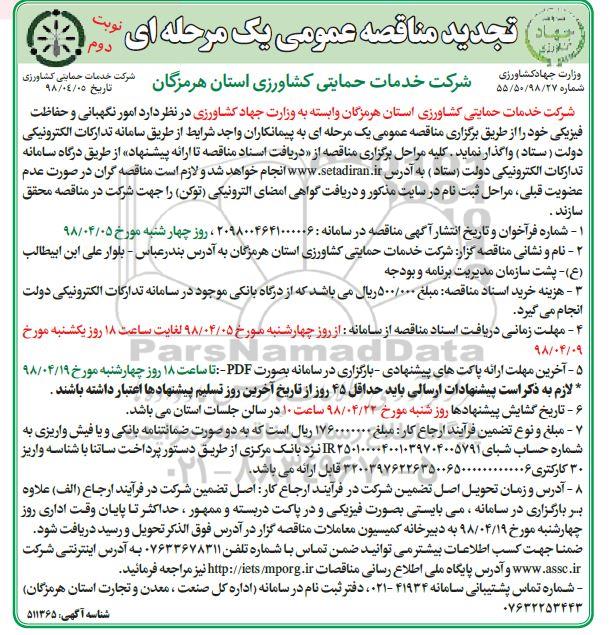 تجدید مناقصه عمومی یک مرحله ای
نوبت دوم
جهاد کشاورزی
وزارت جهادکشاورزی
شماره ۵۵/۵۰/۹۸/۲۷
شرکت خدمات حمایتی کشاورزی استان هرمزگان
شرکت خدمات حمایتی کشاورزی
تاریخ ۹۸/۰۴/۰۵
شرکت خدمات حمایتی کشاورزی استان هرمزگان وابسته به وزارت جهاد کشاورزی در نظر دارد امور نگهبانی و حفاظت
فیزیکی خود را از طریق برگزاری مناقصه عمومی یک مرحله ای به پیمانکاران واجد شرایط از طریق سامانه تدارکات الکترونیکی
دولت ( ستاد ) واگذار نماید . کلیه مراحل برگزاری مناقصه از «دریافت اسناد مناقصه تا ارائه پیشنهاد» از طریق درگاه سامانه
تدارکات الکترونیکی دولت (ستاد ) به آدرس www.setadiran.ir انجام خواهد شد و لازم است مناقصه گران در صورت عدم
عضویت قبلی، مراحل ثبت نام در سایت مذکور و دریافت گواهی امضای الترونیکی (توکن) را جهت شرکت در مناقصه محقق
سازند .
۱ - شماره فرآخوان و تاریخ انتشار آگهی مناقصه در سامانه : ۲۰۹۸۰۰۴۶۴۱۰۰۰۰۰۶ ، روز چهار شنبه مورخ ۹۸/۰۴/۰۵
۲ - نام و نشانی مناقصه گزار: شرکت خدمات حمایتی کشاورزی استان هرمزگان به آدرس بندرعباس - بلوار علی ابن ابیطالب
(ع)- پشت سازمان مدیریت برنامه و بودجه
۳ - هزینه خرید اسناد مناقصه: مبلغ ۵۰۰/۰۰۰ ریال می باشد که از درگاه بانکی موجود در سامانه تدارکات الکترونیکی دولت
انجام می گیرد.
۴ - مهلت زمانی دریافت اسناد مناقصه از سامانه : از روز چهارشنبه مورخ ۹۸/۰۴/۰۵ لغایت ساعت ۱۸ روز یکشنبه مورخ
۹۸/۰۴/۰۹
۵ - آخرین مهلت ارائه پاکت های پیشنهادی -بارگزاری در سامانه بصورت PDF-: تا ساعت ۱۸ روز چهارشنبه مورخ ۹۸/۰۴/۱۹
* لازم به ذکر است پیشنهادات ارسالی باید حداقل ۴۵ روز از تاریخ آخرین روز تسلیم پیشنهادها اعتبار داشته باشند .
۶ - تاریخ گشایش پیشنهادها روز شنبه مورخ ۹۸/۰۴/۲۲ ساعت ۱۰ در سالن جلسات استان می باشد.
۷ - مبلغ و نوع تضمین فرآیند ارجاع کار: مبلغ ۱۷۶۰۰۰۰۰۰۰ ریال است که به دو صورت ضمانتنامه بانکی و یا فیش واریزی به
شماره حساب شبای IR۲۵۰۱۰۰۰۰۴۰۰۱۰۳۹۷۰۴۰۰۵۷۹۱ نزد بانک مرکزی از طریق دستور پرداخت ساتنا با شناسه واریز
۳۰ کارکتری ۳۲۰۰۳۹۷۶۲۲۶۳۵۰۰۶۵۰۰۰۰۰۰۰۰۰۰۰۶ قابل ارائه می باشد.
۸ - آدرس و زمان تحویل اصل تضمین شرکت در فرآیند ارجاع کار : اصل تضمین شرکت در فرآیند ارجاع (الف) علاوه
بر بارگزاری در سامانه ، می بایستی بصورت فیزیکی و در پاکت دربسته و ممهور ، حداکثر تا پایان وقت اداری روز
چهارشنبه مورخ ۹۸/۰۴/۱۹ به دبیرخانه کمیسیون معاملات مناقصه گزار در آدرس فوق الذکر تحویل و رسید دریافت شود.
ضمنا جهت کسب اطلاعات بیشتر می توانید ضمن تماس با شماره تلفن ۰۷۶۳۳۶۷۸۳۱۱ به آدرس اینترنتی شرکت
www.assc.ir و آدرس پایگاه ملی اطلاع رسانی مناقصات http://iets/mporg.ir نیز مراجعه فرمائید.
- شماره تماس پشتیبانی سامانه ۴۱۹۳۴ -۰۲۱، دفتر ثبت نام در سامانه (اداره کل صنعت ، معدن و تجارت استان هرمزگان)
۰۷۶۳۲۲۵۳۴۴۳
شناسه آگهی: ۵۱۱۳۶۵
ParsNamadData
۰۲۱-۸۸۳۴۹۶۷۰-۵